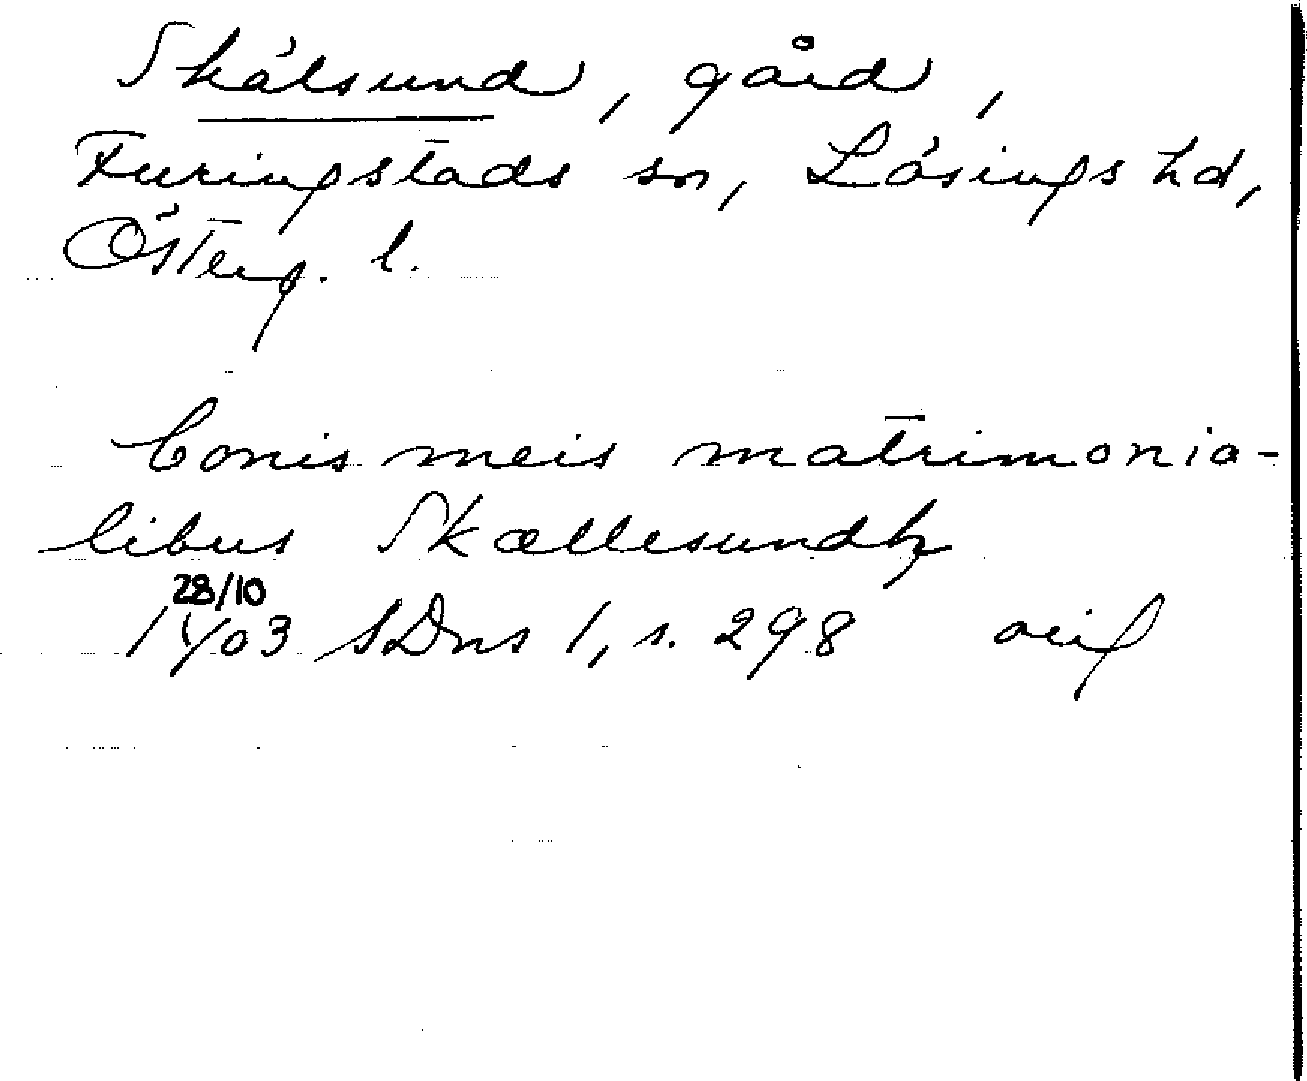 Skälsund, gård,
Furingstads sn, Lösings hd,
Österg. l.
bonis meis matrimonia-
libus Skællesundh
28/10
1403 SDns 1, s. 298 orig